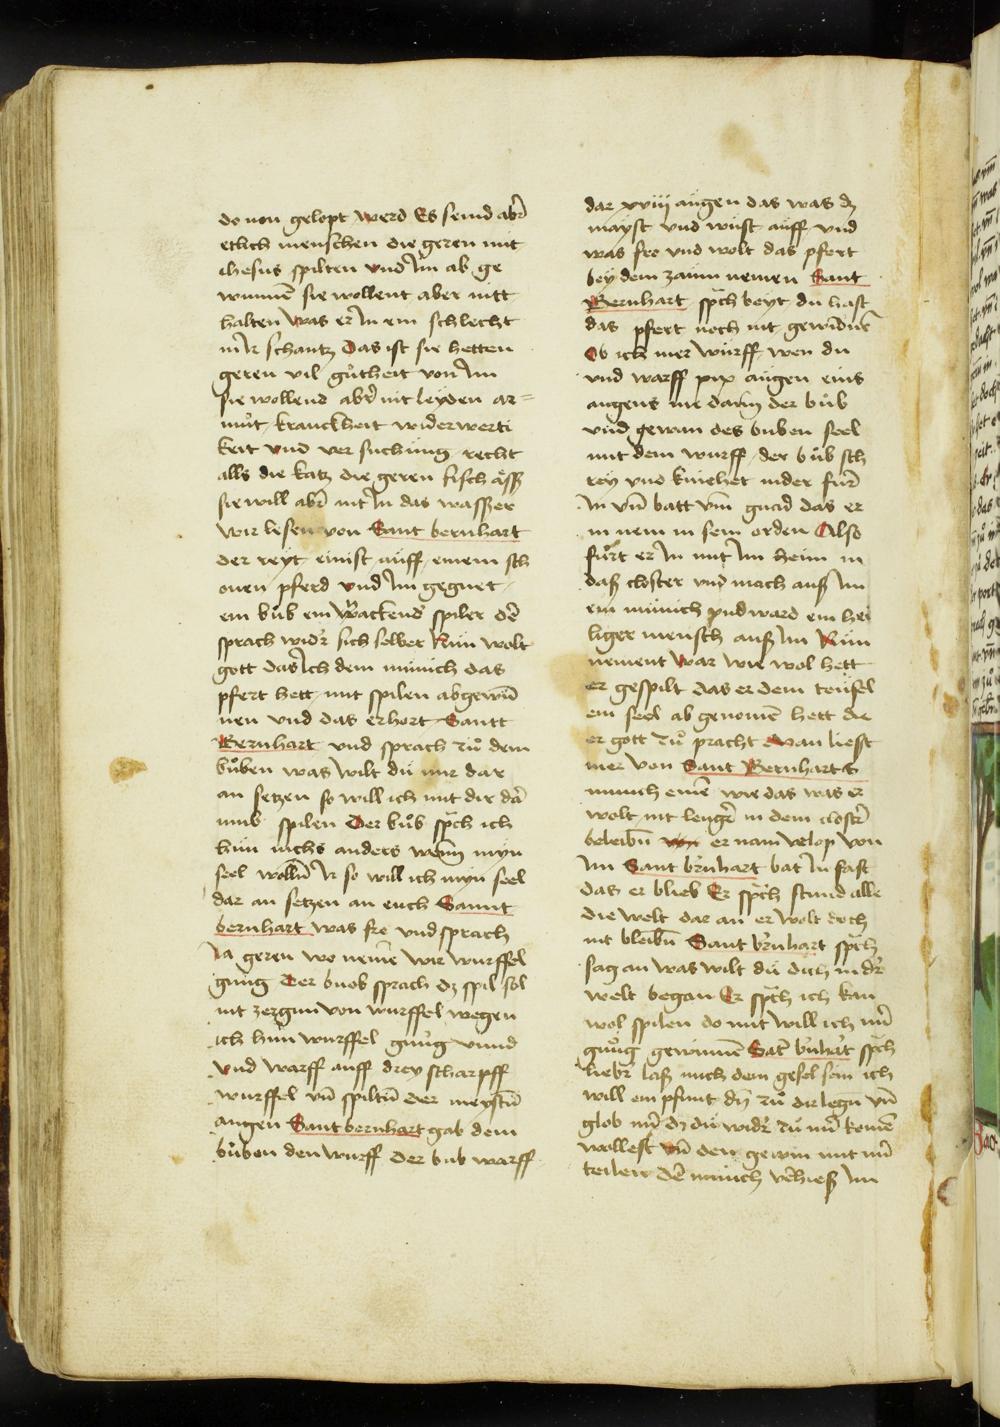 do von gelopt werd Es seind abr̄
etlich menschen die geren mit
ihesus spilten vnd Im ab ge
wunnen̄ sie wollent aber nitt
halten was er In ein schlecht
in Ir schantz Das ist sie hetten
geren vil gůtheit von Im
sie wollend abr̄ nit leyden ar=
můt kranckheit widerwerti
keit vnd ver sůchung recht
alls die katz die geren fisch åſſz
sie will abr̄ nit In das wasser
wir lesen von Sant bernhart
der reyt einist auff einem sch
onen pferd vnd Im gegnet
ein bůb ein wackend spiler dē
sprach wid'r sich selber Nun wolt
gott das Ich dem münich das
pfert hett mit spilen abgewū
nen vnd das erhort Santt
Bernhart vnd sprach zů dem
bůben was wilt du mir dar
an setzen so will ich mit dir dā
umb spilen Der bůb sp̄ch ich
hun nichs anders wenn myn
seel wollū Ir so will ich myn seel
dar an setzen an euch Sannt
bernhart was fro vnd sprach
Ia geren wo nemē wir wurffel
gnug Der buob sprach dz spil sol
nit zergun von wurffel wegen
ich hun wurffel gnůg vnnd
vnd warff auff drey scharpff
wurffel vn̄ spiltū der meystū
augen Sant bernhart gab dem
bůben den wurff der bub warff
dar xviij augen das was dz
mayst vnd wust auff vnd
was fro vnd wolt das pfert
bey dem zaum nemen Sant
Bernhart sp̄ch beyt du hast
das pfert noch nit gewunnē
Ob ich mer wurff wen du
vnd warff xix augen eins
augens me dann der bůb
vnd gewan des buben seel
mit dem wurff der bůb sch
rey vnd kniehet nider fur̄
In vn̄ batt vm̄ gnad das er
in nem in sein orden Also
fůrt er In mit Im heim in
daß closter vnd mach auß Im
ein münich vnd ward ein hei
liger mensch auß Im Nun
nement war wie wol hett
er gespilt das er dem teufel
ein seel ab genomē hett die
er gott zů pracht Man liest
mer von Sant Bernharts
münch einē wie das was er
wolt nit lenger in dem closter
beleibn̄ er nam velop von
Im Sant br̄nhart bat In fast
das er blieb Er sp̄ch stund alle
die welt dar an er wolt doch
nit bleibn̄ Sant br̄nhart sp̄ch
sag an was wilt du dich in d'r
welt began Er sp̄ch ich kan
wol spilen do mit will ich mir̄
gnůg gewinnē Sāt br̄nhart sp̄ch
lieber laß mich dein gesel sein ich
will ein pfunt dn̄ zů dir legn vn̄
glob mir̄ dz du wid'r zů mir̄ komē
wollest vn̄ den gewin mit mir̄
teilen dē münich v̄hieß Im